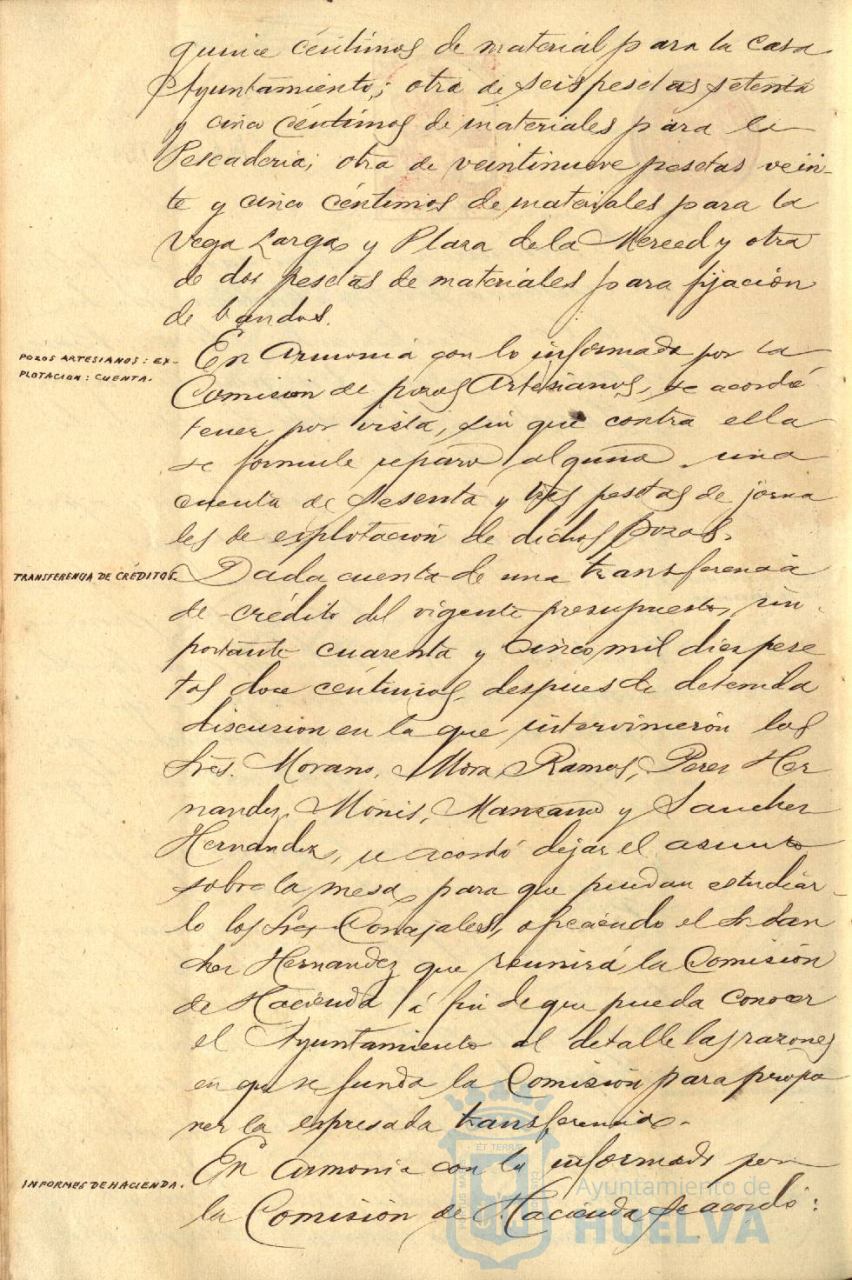 quince céntimos de material para la casa
Ayuntamiento; otra de seis pesetas setenta
y cinco céntimos de materiales para la
Pescaderia; otra de veintinueve pesetas vein-
te y cinco céntimos de materiales para la
Vega Larga y Plaza de la Merced y otra
de dos pesetas de materiales para fijación
de bandos.
POZOS ARTESIANOS: EX-
PLOTACION: CUENTA.
En Armonia con lo informado por la
Comisión de pozos Artesianos, se acordó
tener por vista, sin que contra ella
se formule reparo alguno, una
cuenta de sesenta y tres pesetas de jorna
les de explotación de dichos pozos.
TRANSFERENCIA DE CRÉDITOS.
Dada cuenta de una transferencia
de crédito del vigente presupuesto, im-
portante cuarenta y cinco mil diez pese
tas doce céntimos, despues de detenida
discusion en la que intervinieron los
Sres. Morano, Mora, Ramos, Perez Her
nandez, Monis, Manzano y Sanchez
Hernandez, se acordó dejar el asunto
sobre la mesa para que puedan estudiar-
lo los Sres Concejales, ofreciendo el Sr San
chez Hernandez que reunirá la Comisión
de Hacienda á fin de que pueda conocer
el Ayuntamiento al detalle las razones
en que se funda la Comisión para propo
ner la expresada transferencia.
INFORMES DE HACIENDA.
En armonia con lo informado por
la Comisión de Hacienda se acordó:
Ayuntamiento de
HUELVA